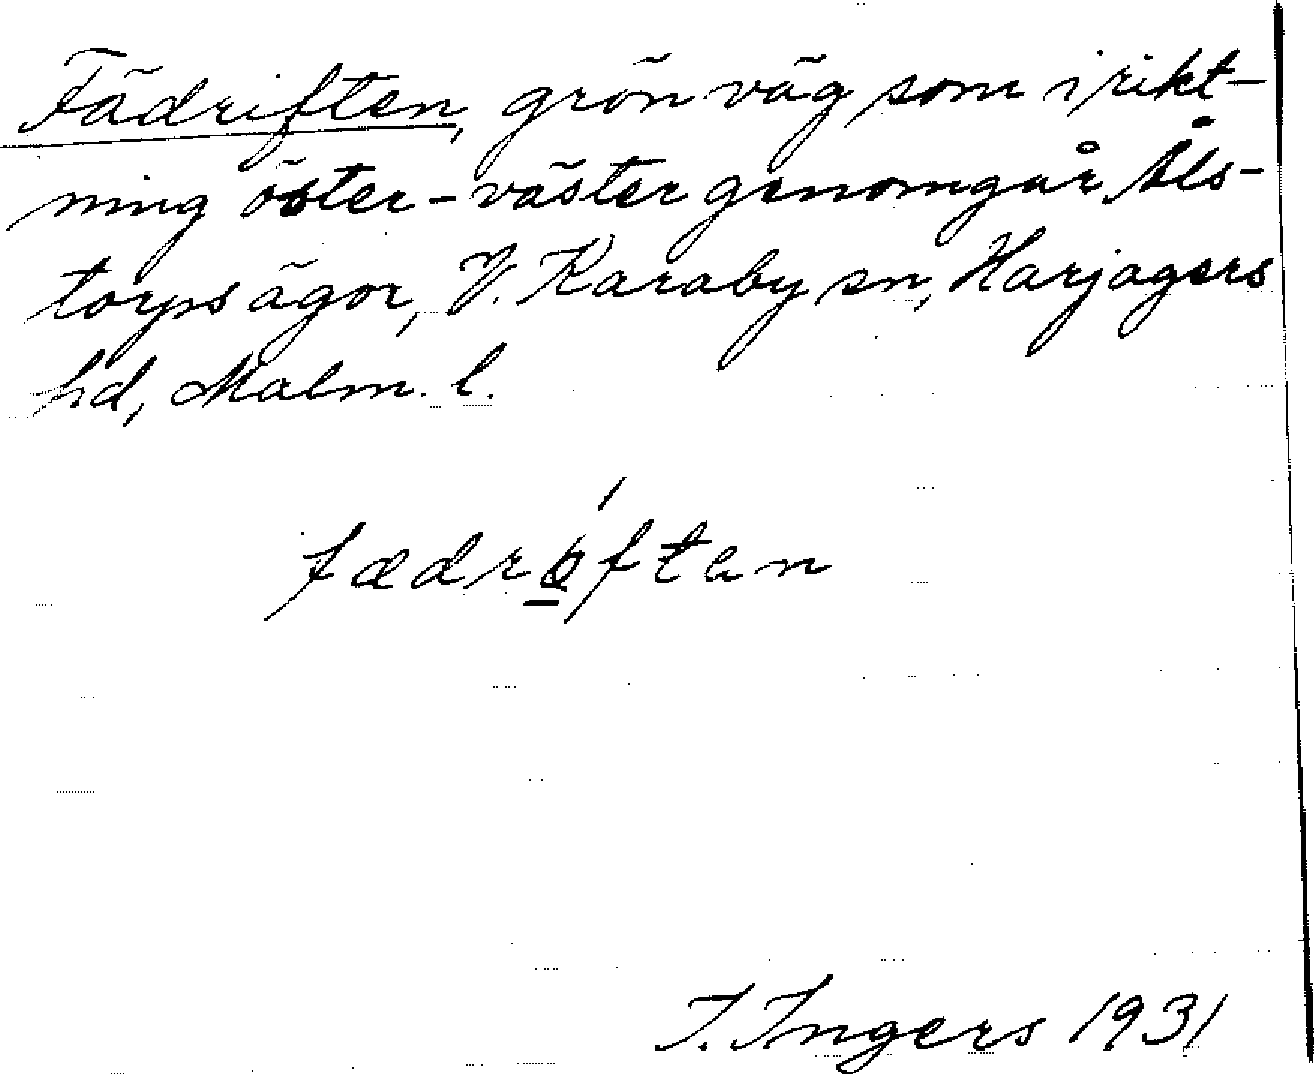 Fädriften, grön väg som i rikt-
ning öster-väster genomgår Åls-
torps ägor, V. Karaby sn, Harjagers
hd, Malm. l.
I. Ingers 1931